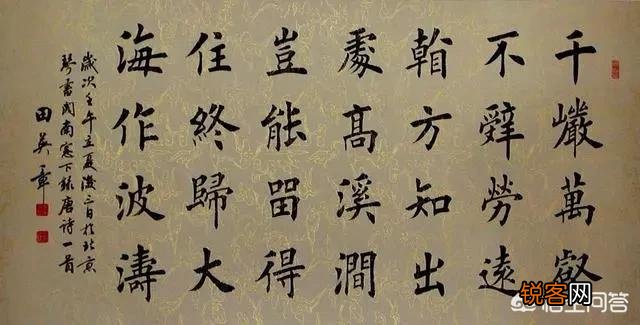 千巖萬壑
不辭勞遠
看方知出
處高溪澗
豈能留得
住終歸大
海作波濤
歲次壬午立夏後三日於北京
琴書閣南窗下錄唐詩一首
田英章
锐客网
悟空问答